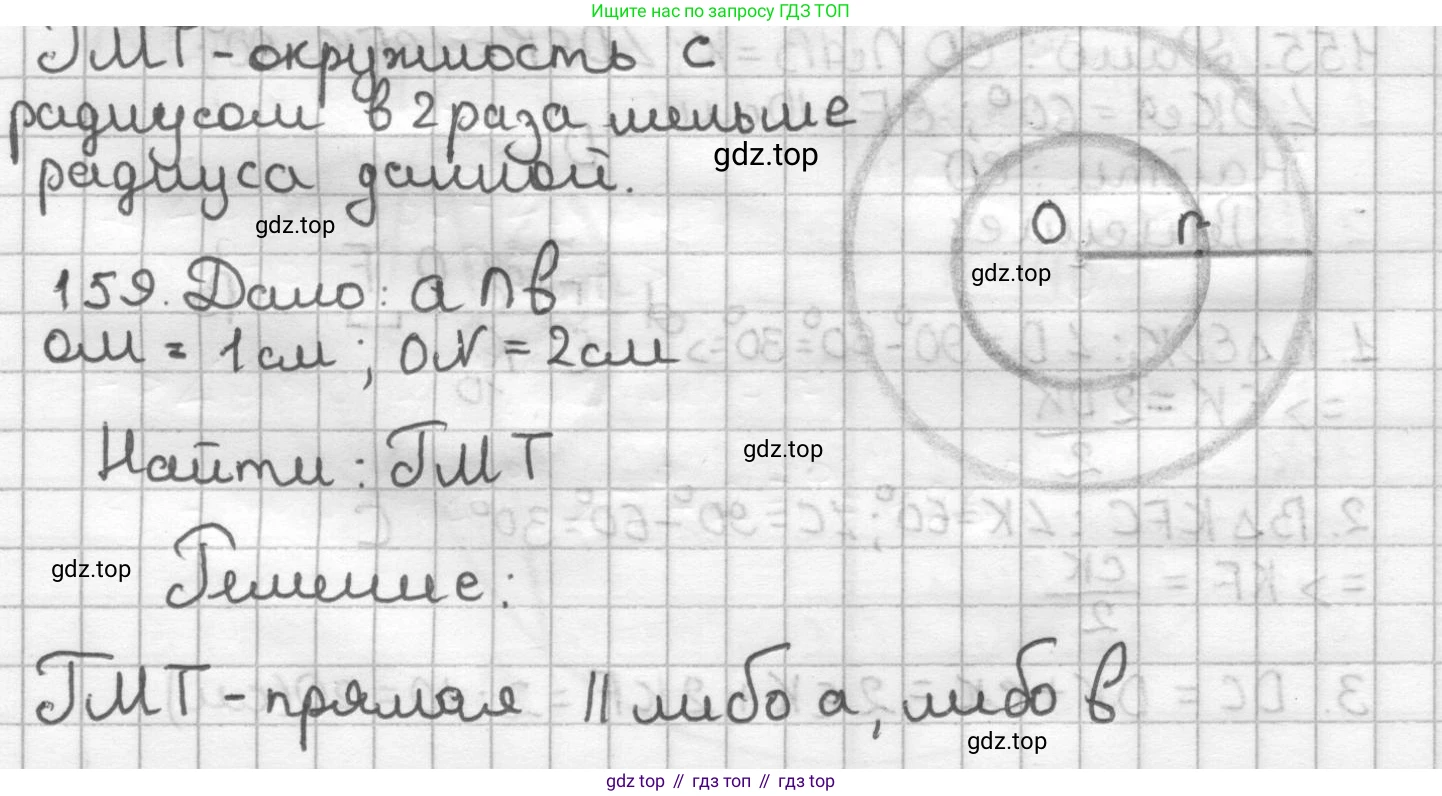 Ищите нас по запросу ГДЗ ТОП
ГМТ - окружность с
радиусом в 2 раза меньше
gdz.top
радиуса данной.
gdz.top
O r
gdz.top
159. Дано: a ∩ b
OM = 1 см; ON = 2 см
Найти: ГМТ
gdz.top
gdz.top
Решение:
ГМТ - прямая || либо a, либо b
gdz.top
gdz top // гдз топ // гдз top